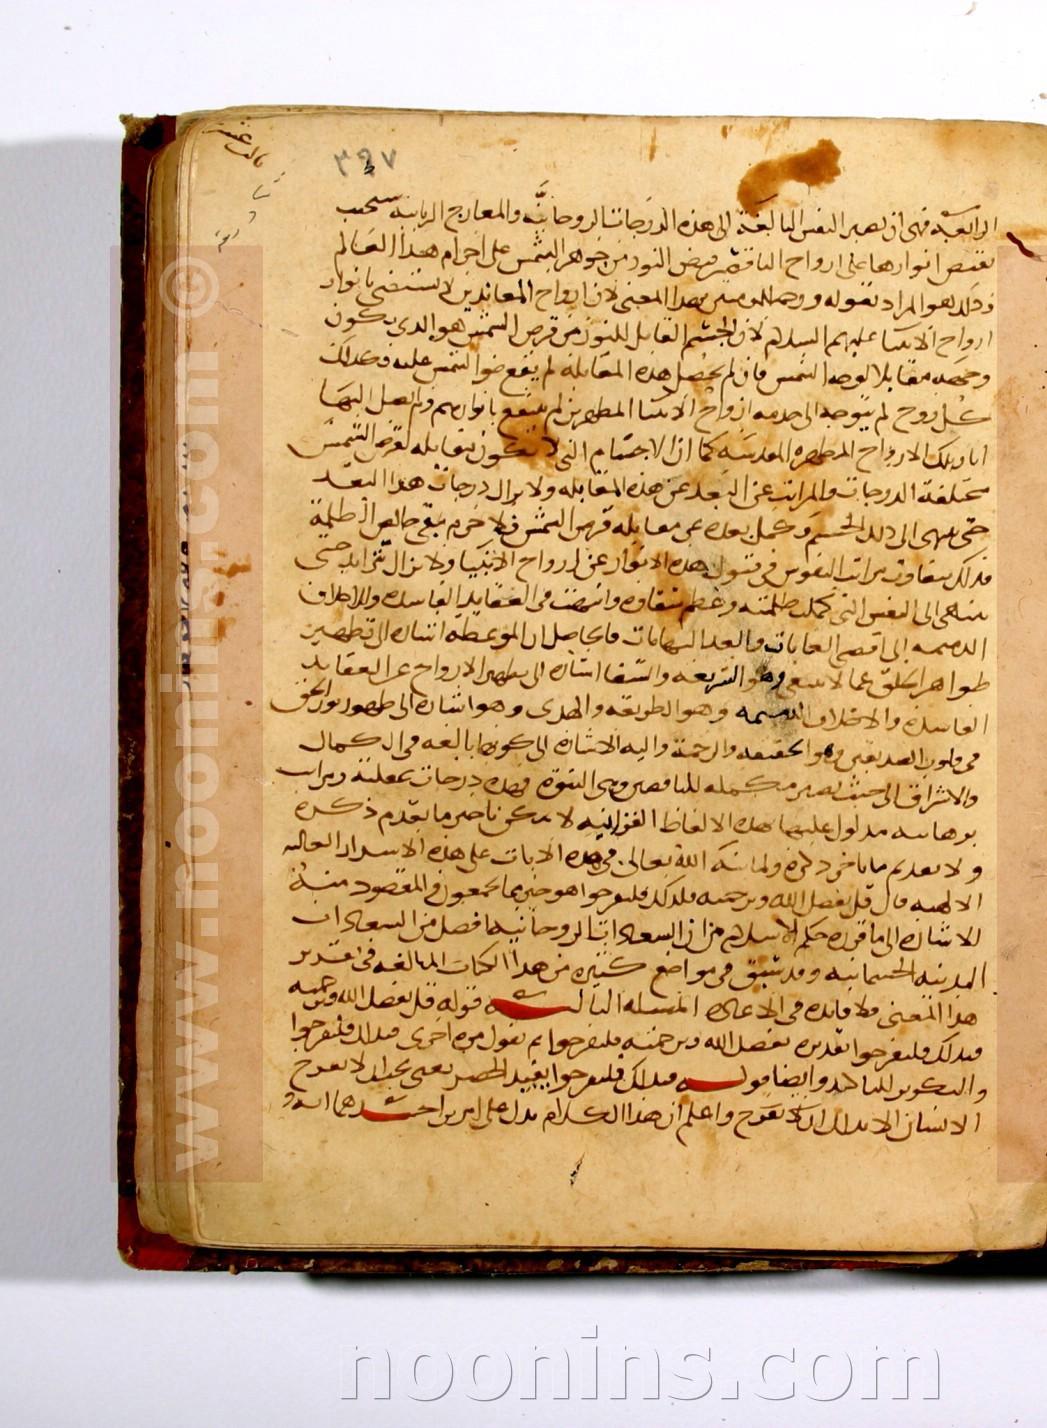 ٣٩٧
الرابعة فهي ان تصير النفس البالغة الى هذه الدرجات الروحانية والمعارج الربانية بحيث
تفيض انوارها على ارواح الناقصين فيض النور من جوهر الشمس على اجرام هذا العالم
وذلك هو المراد بقوله ورحمة للمومنين بهذا المعنى لان ارواح المعاندين لا تستضي بانوار
ارواح الانبيا عليهم السلام لان الجسم القابل للنور من قرص الشمس هو الذي يكون
وجهه مقابلا لوجه الشمس فان لم يحصل هذه المقابلة لم يقع ضوا الشمس عليه فكذلك
كل روح لم يتوجه الى خدمه ارواح الانبيا المطهرين لم ينتفع بانوارهم ولم يصل اليها
اثار تلك الارواح المطهره المقدسه كما ان الاجسام التي لا تكون مقابله لقرص الشمس
مختلفة الدرجات والمراتب في البعد عن هذه المقابله ولا يزال درجات هذا البعد
حتى ينتهى الى ذلك الجسم وكمل بعده عن مقابله قرص الشمس فلا جرم بقي خالص الظلمة
فكذلك يتفاوت مراتب النفوس في قبول هذه الانوار عن ارواح الانبيا ولا تزال تتزايد حتى
ينتهى الى النفس التي كملت ظلمته وعظم شقاوه وانتهت في العقايد الفاسده والاخلاق
الذميمه الى اقصى الغايات وابعد النهايات فالحاصل ان الموعظه اشاره الى تطهير
ظواهر الخلق عما لا ينبغي وهو الشريعه والشفا اشاره الى تطهير الارواح عن العقايد
الفاسده والاخلاق الذميمه وهو الطريقه والهدى وهو اشاره الى ظهور نور الحق
في قلوب الصديقين وهو الحقيقه والرحمة واليه الاشاره الى كونها بالغه في الكمال
والاشراق الى حيث تصير مكمله للناقصين وهى النبوة فهذه درجات عقلية ومراتب
برهانيه مدلول عليها بهذه الالفاظ القرانيه لا يمكن تاخير ما تقدم ذكره
ولا تقديم ما تاخر ذكره ولما نبه الله تعالى في هذه الايات على هذه الاسرار العاليه
الالهيه قال قل بفضل الله وبرحمته فبذلك فليفرحوا هو خير مما يجمعون والمقصود منه
الاشاره الى ما قرره حكما الاسلام من ان السعادات الروحانيه افضل من السعادات
البدنيه الجسمانيه وقد سبق في مواضع كثيرة من هذا الكتاب المبالغه في تقدير
هذا المعنى فلا فايده في الاعاده المسله الثالثه قوله قل بفضل الله وبرحمته
فبذلك فليفرحوا تقديره بفضل الله وبرحمته فليفرحوا ثم يقول مره اخرى فبذلك فليفرحوا
والتكرير للتاكيد وايضا قوله فبذلك فليفرحوا يفيد الحصر يعني يجب ان لا يفرح
الانسان الا بذلك واعلم ان هذا الكلام يدل على امرين احدهما انه
www.noonins.com ©
noonins.com